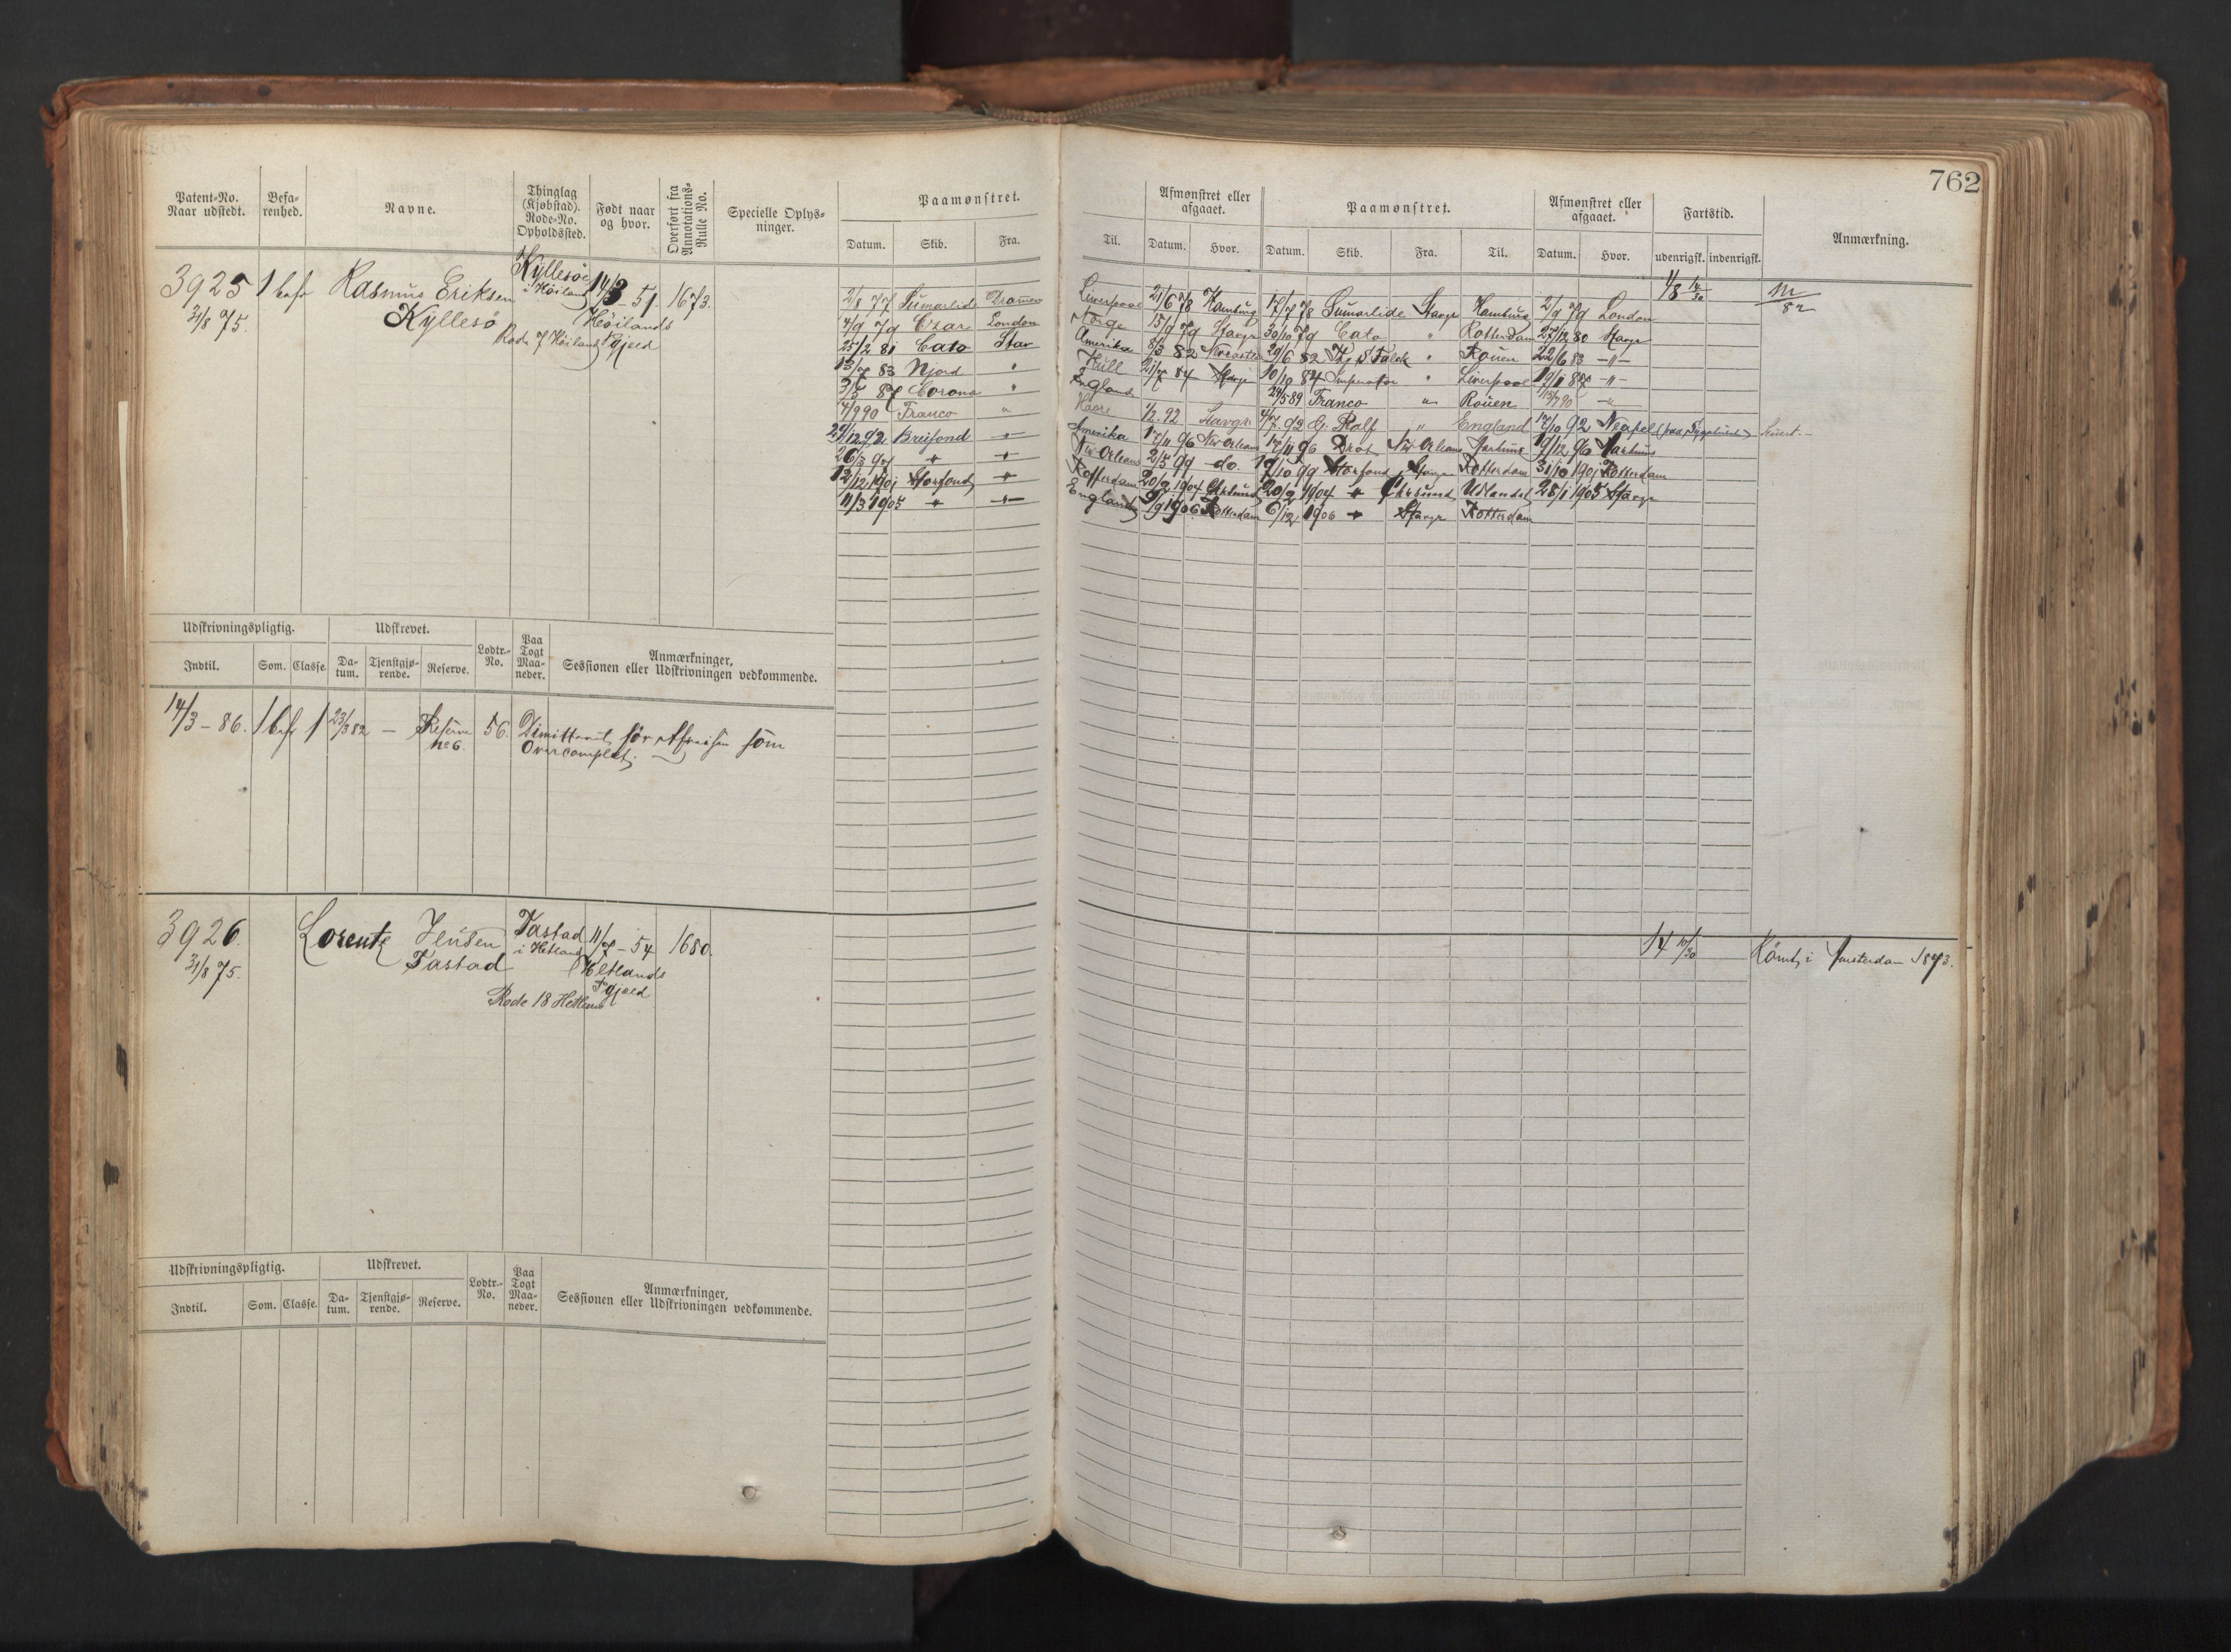 762
Patent-No.
Naar udstedt.
Befa-
renhed.
Navne.
Thinglag
(Kjøbstad).
Rode-No.
Opholdssted.
Født naar
og hvor.
Overført fra
Annotations-
Rulle No.
Specielle Oplys-
ninger.
Paamønstret.
Datum. Skib. Fra.
Til.
Afmønstret eller
afgaaet.
Datum. Hvor.
Paamønstret.
Datum. Skib. Fra. Til.
Afmønstret eller
afgaaet.
Datum. Hvor.
Fartstid.
udenrigsk. indenrigsk.
Anmærkning.
3925 1 bef Rasmus Eriksen Kyllesøe 14/3 - 51. 1673.
31/8 75. Kyllesö i Höiland Höilands
Rode 7 Höiland Pgjeld
48 14/30
M/82
2/8 77 Sumarlide Drammen Liverpool 21/6 78 Hamburg 17/7 78 Sumarlide Stavgr Hamburg 2/9 79 London
4/9 79 Czar London Norge 15/9 79 Stavgr 30/10 79 Cato " Rotterdam 27/12 80 Stavgr
25/2 81 Cato Stav Amerika 8/3 82 Newcastle 29/6 82 Thj S Falck " Rouen 22/6 83 -"-
13/7 83 Njord " Hull 21/7 84 Stavgr 10/10 84 Imperator " Liverpool 19/1 87 -"-
2/5 87 Corona " England 24/5 89 Franco " Rouen 90 -"-
4/9 90 Franco " Havre 1/2 92 Stavgr. 4/7 92 G. Ralf " England 17/10 92 Neapel
29/12 92 Breifond -"- Amerika 17/11 96 New Orleans 17/11 96 Drot New Orleans Aarhuus 19/12 96 Aarhuus
26/3 97 " -"- New Orleans 2/5 99 do. 19/10 99 Storfond Stavgr Rotterdam 31/10 1901 Rotterdam
12/12 1901 Storfond -"- Rotterdam 20/2 1904 Chrsund 20/2 1904 " Chrsund Udlandet 28/1 1905 Stavgr
11/3 1905 " -"- England 9/9 1906 Rotterdam 6/12 1906 " Stavgr Rotterdam
Udskrivningspligtig.
Udskrevet.
Lodtr.-
No.
Paa
Togt
Maa-
neder.
Anmærkninger,
Sessionen eller Udskrivningen vedkommende.
Indtil. Som. Classe. Da-
tum. Tjenstgjø-
rende. Reserve.
14/3 - 86. 1 bef 1 23/3 82 — Reserve 56. Dimitteret før Afreisen som
No 6. Overcomplet.
3926. Lorentz Jensen Tastad 11/7 - 54 1680.
31/8 75. Tastad i Hetland Hetlands
Pgjeld
Rode 18 Hetland
14 10/30
Römt i Amsterdam 1873.
Udskrivningspligtig.
Udskrevet.
Lodtr.-
No.
Paa
Togt
Maa-
neder.
Anmærkninger,
Sessionen eller Udskrivningen vedkommende.
Indtil. Som. Classe. Da-
tum. Tjenstgjø-
rende. Reserve.